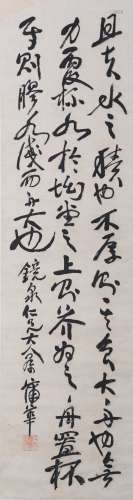 且夫水之積也不厚則其負大舟也無
力覆杯水於坳堂之上則芥為之舟置杯
焉則膠水淺而舟大也 鏡泉仁兄大人 蒲華